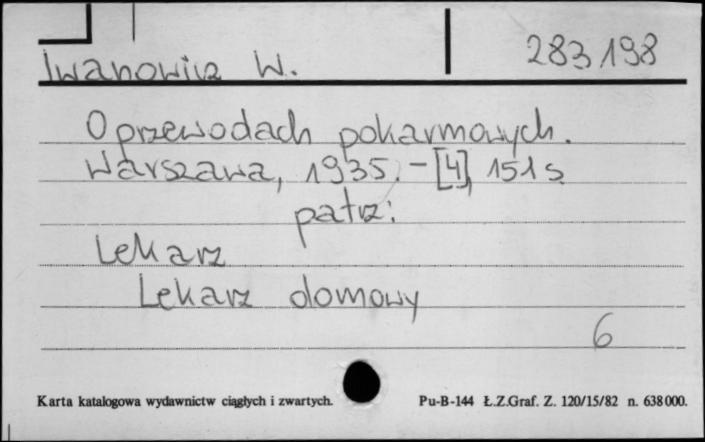 Iwanowicz W.
283198
O przewodach pokarmowych.
Warszawa, 1935. - [4], 151 s.
patrz:
Lekarz
Lekarz domowy
6
Karta katalogowa wydawnictw ciągłych i zwartych.
Pu-B-144 Ł.Z.Graf. Z. 120/15/82 n. 638000.